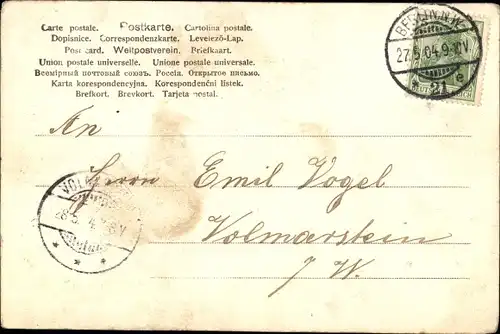 Carte postale. Postkarte. Cartolina postale.
Dopisnice. Correspondenzkarte. Levelező-Lap.
Postcard. Weltpostverein. Briefkaart.
Union postale universelle. Unione postale universale.
Всемірный почтовый союзъ. Россія. Открытое письмо.
Karta korespondencyjna. Korespondenční lístek.
Brefkort. Brevkort. Tarjeta postal.
BERLIN N.W.
27.5.04.9-10V
* 21 e
An
Herrn Emil Vogel
Volmarstein
i/W.
VOLMARSTEIN
28.5.04